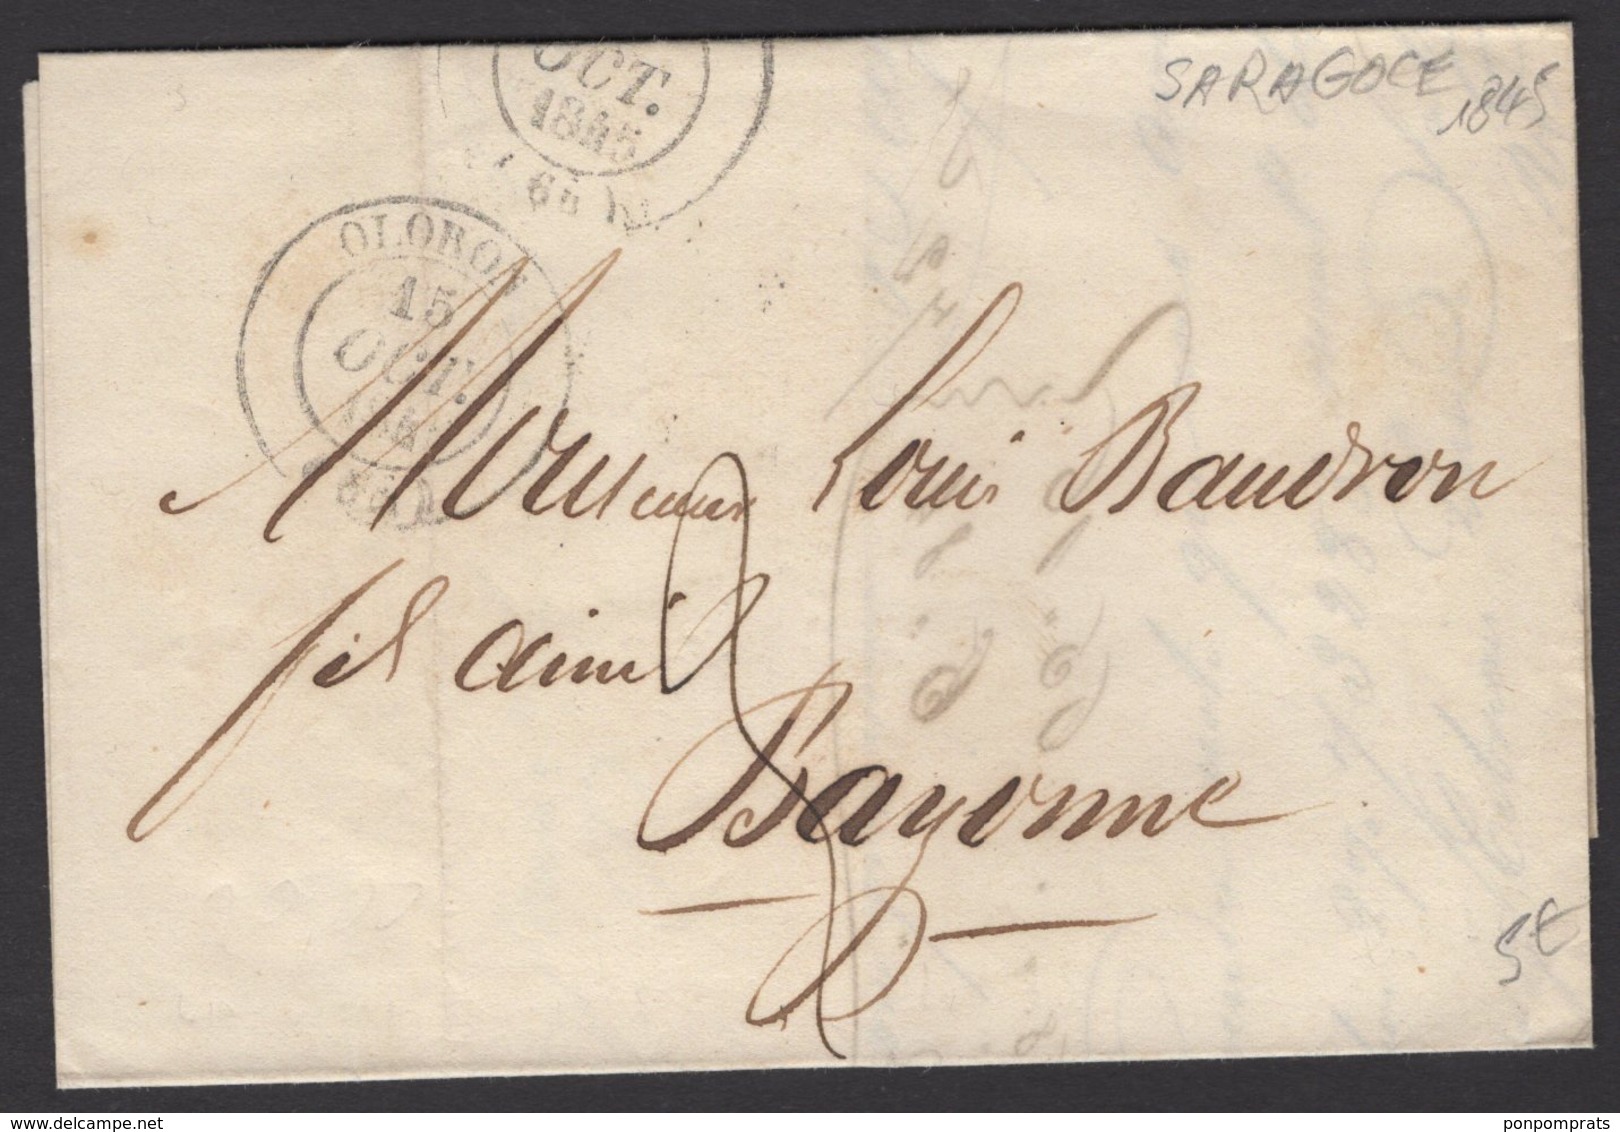 OCT.
1845
SARAGOCE 1845
OLORON
15
OCT.
Monsieur Louis Baudron
fils ainé
Bayonne
5€
delcampe.net
ponpomprats